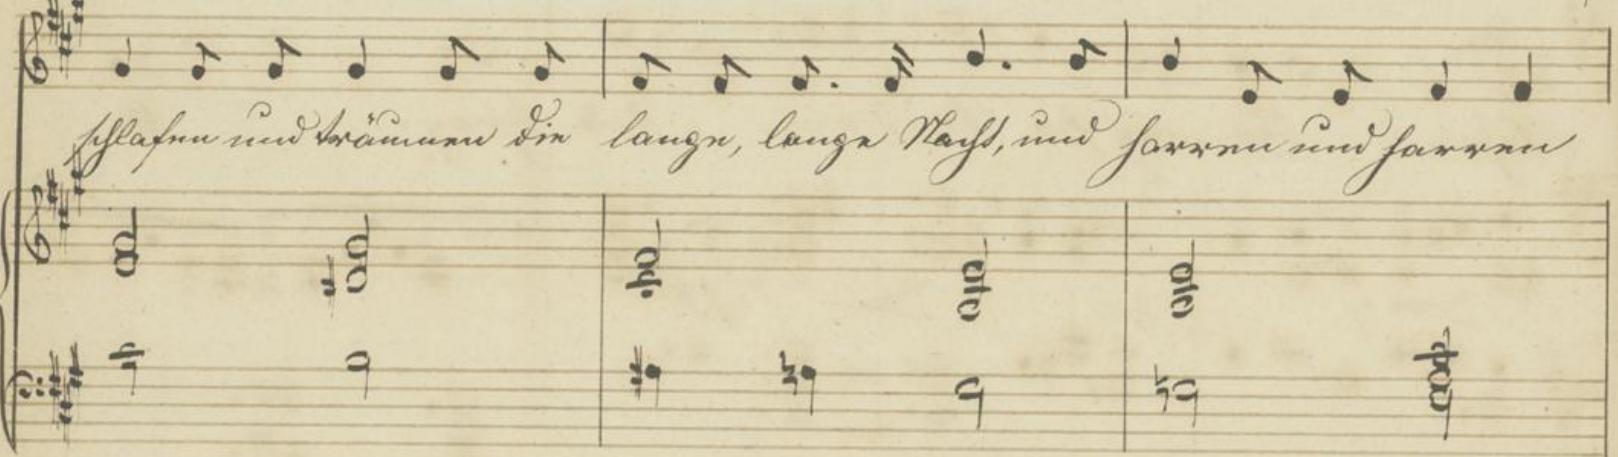 schlafen und träumen die lange, lange Nacht, und harren und harren